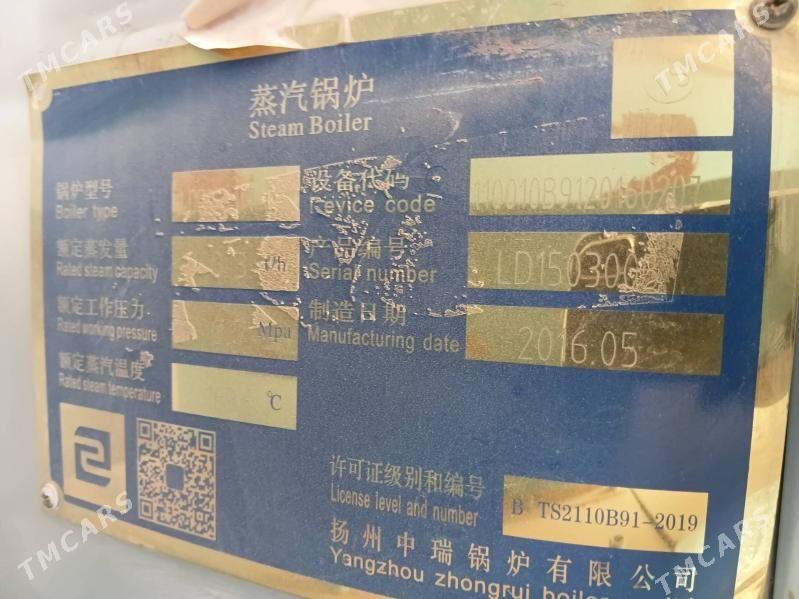 蒸汽锅炉
Steam Boiler
锅炉型号
Boiler type
设备代码
Device code
110010B9120160207
额定蒸发量
Rated steam capacity
t/h
产品编号
Serial number
额定工作压力
Rated working pressure
Mpa
制造日期
Manufacturing date
2016.05
额定蒸汽温度
Rated steam temperature
℃
许可证级别和编号
License level and number
B TS2110B91-2019
扬州中瑞锅炉有限公司
Yangzhou zhongrui boiler
TMCARS
TMCARS
TMCARS
TMCARS